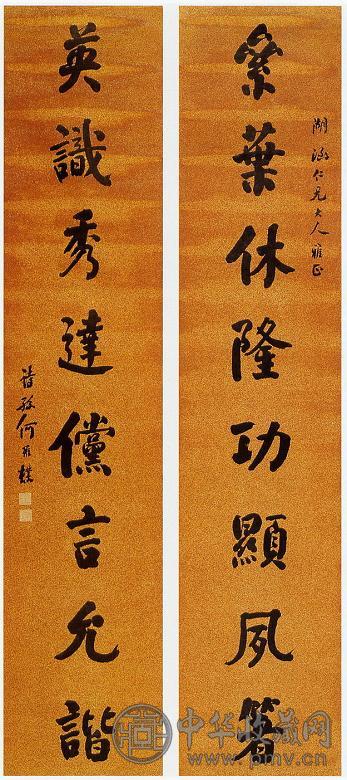 湖仁兄大人雅正
絫葉休隆功顯夙箸
英識秀達儻言允諧
詩孫何維樸
中华收藏网
www.pmv.cn